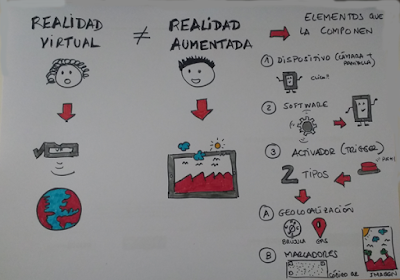 REALIDAD
VIRTUAL
≠
REALIDAD
AUMENTADA
ELEMENTOS QUE
LA COMPONEN
1 DISPOSITIVO (CÁMARA +
PANTALLA)
2 SOFTWARE
3 ACTIVADOR (TRIGGER)
2 TIPOS
A GEOLOCALIZACIÓN
BRÚJULA GPS
B MARCADORES
IMAGEN